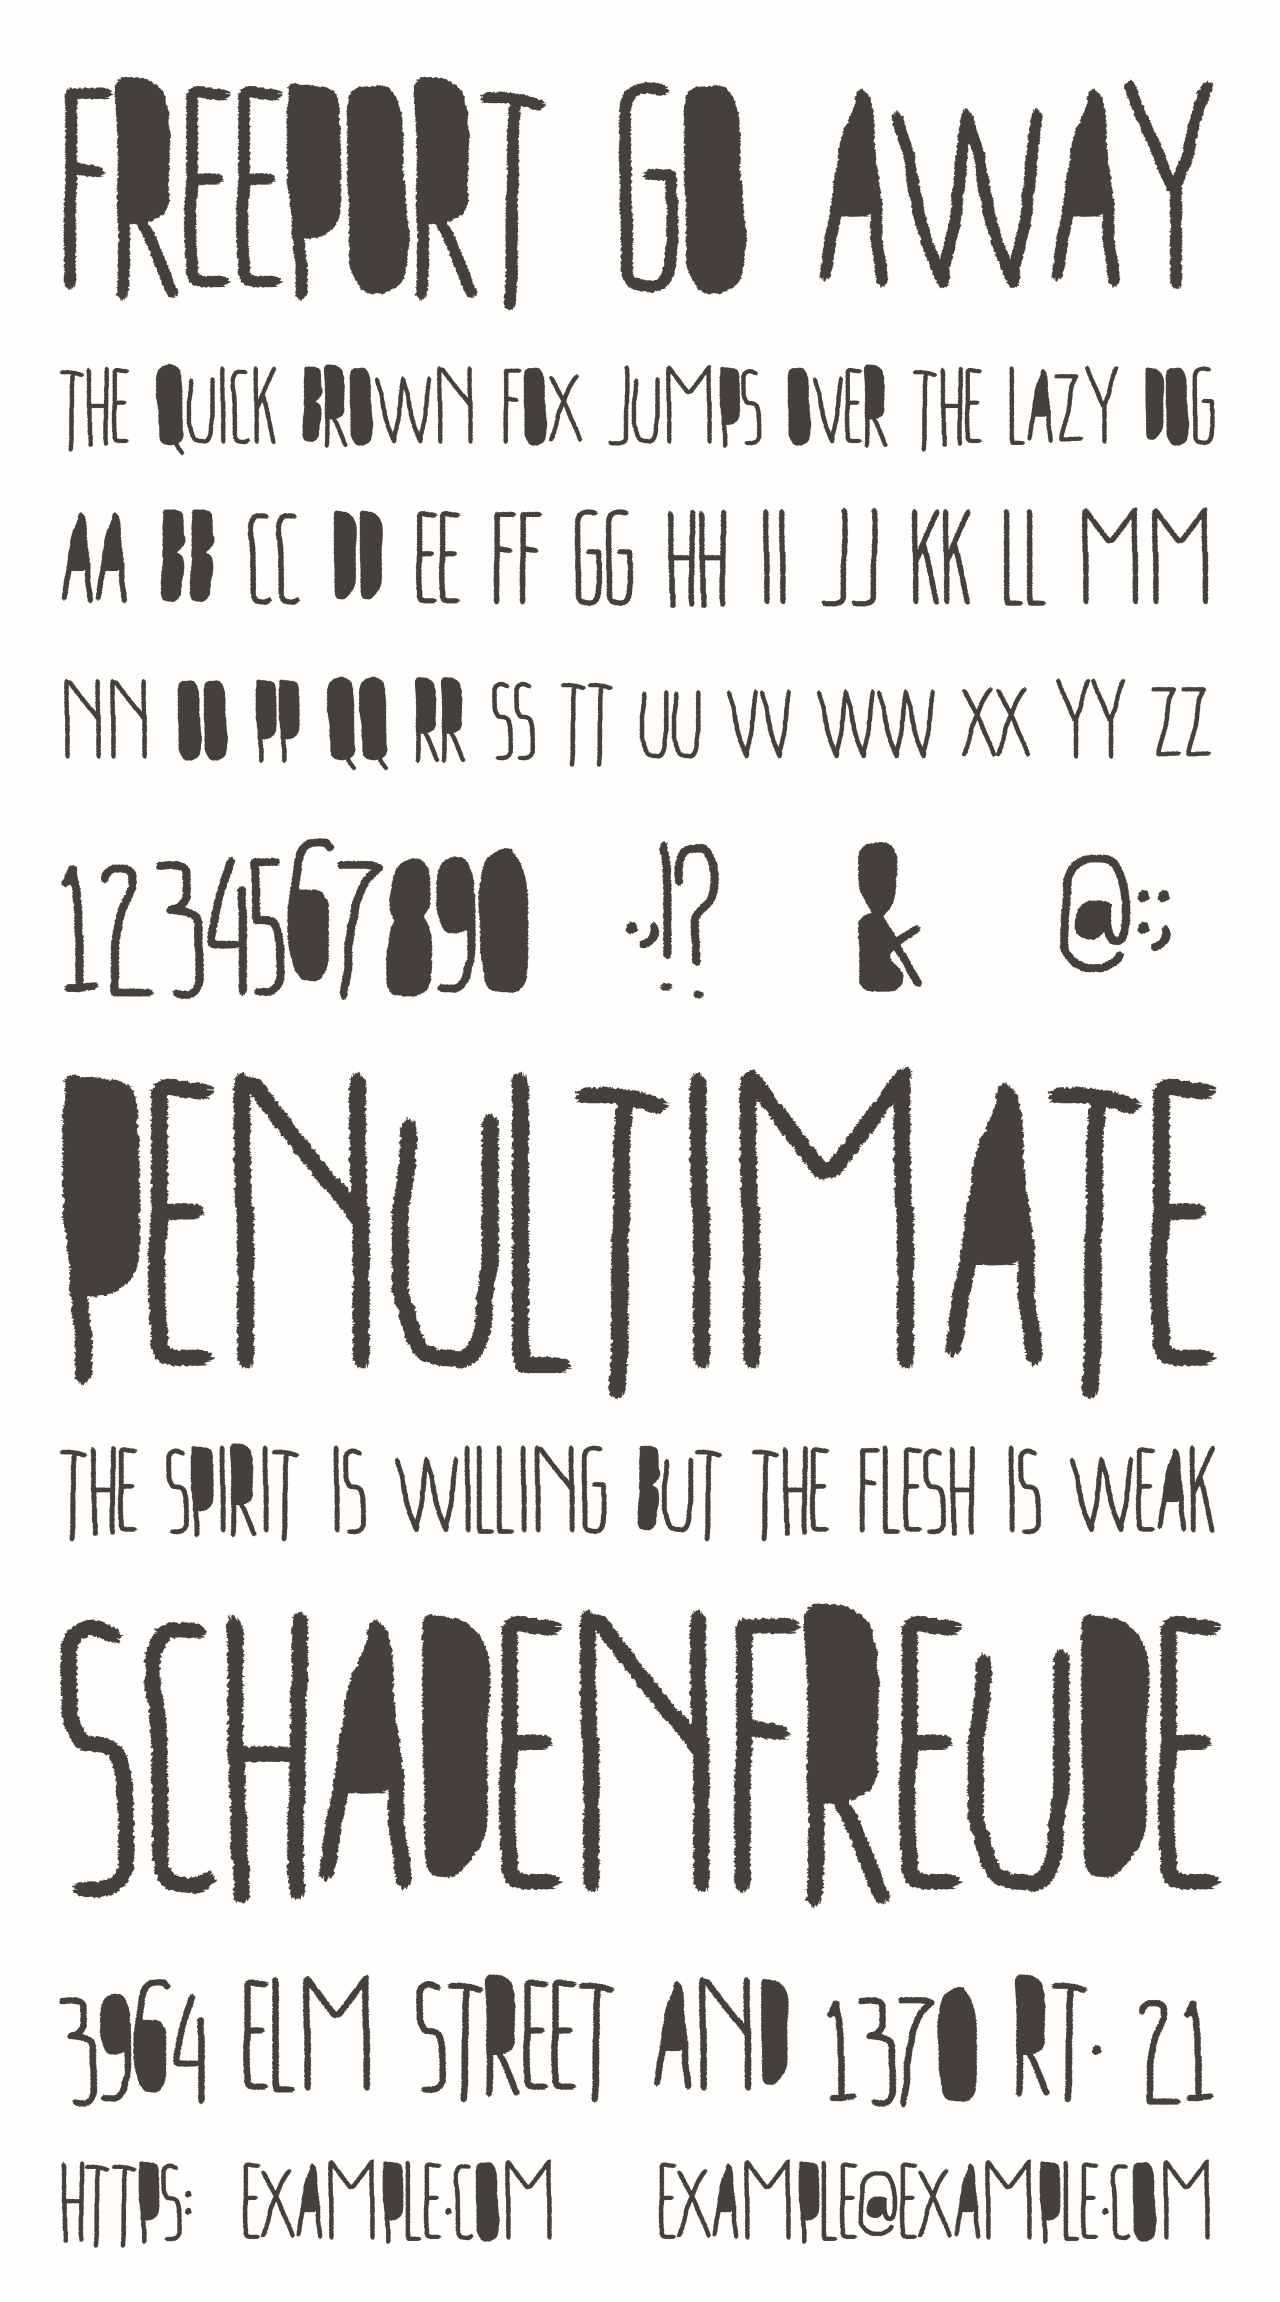 FREEPORT GO AWAY
THE QUICK BROWN FOX JUMPS OVER THE LAZY DOG
AA BB CC DD EE FF GG HH II JJ KK LL MM
NN OO PP QQ RR SS TT UU VV WW XX YY ZZ
1234567890 .,!? & @:;
PENULTIMATE
THE SPIRIT IS WILLING BUT THE FLESH IS WEAK
SCHADENFREUDE
3964 ELM STREET AND 1370 RT. 21
HTTPS: EXAMPLE.COM EXAMPLE@EXAMPLE.COM